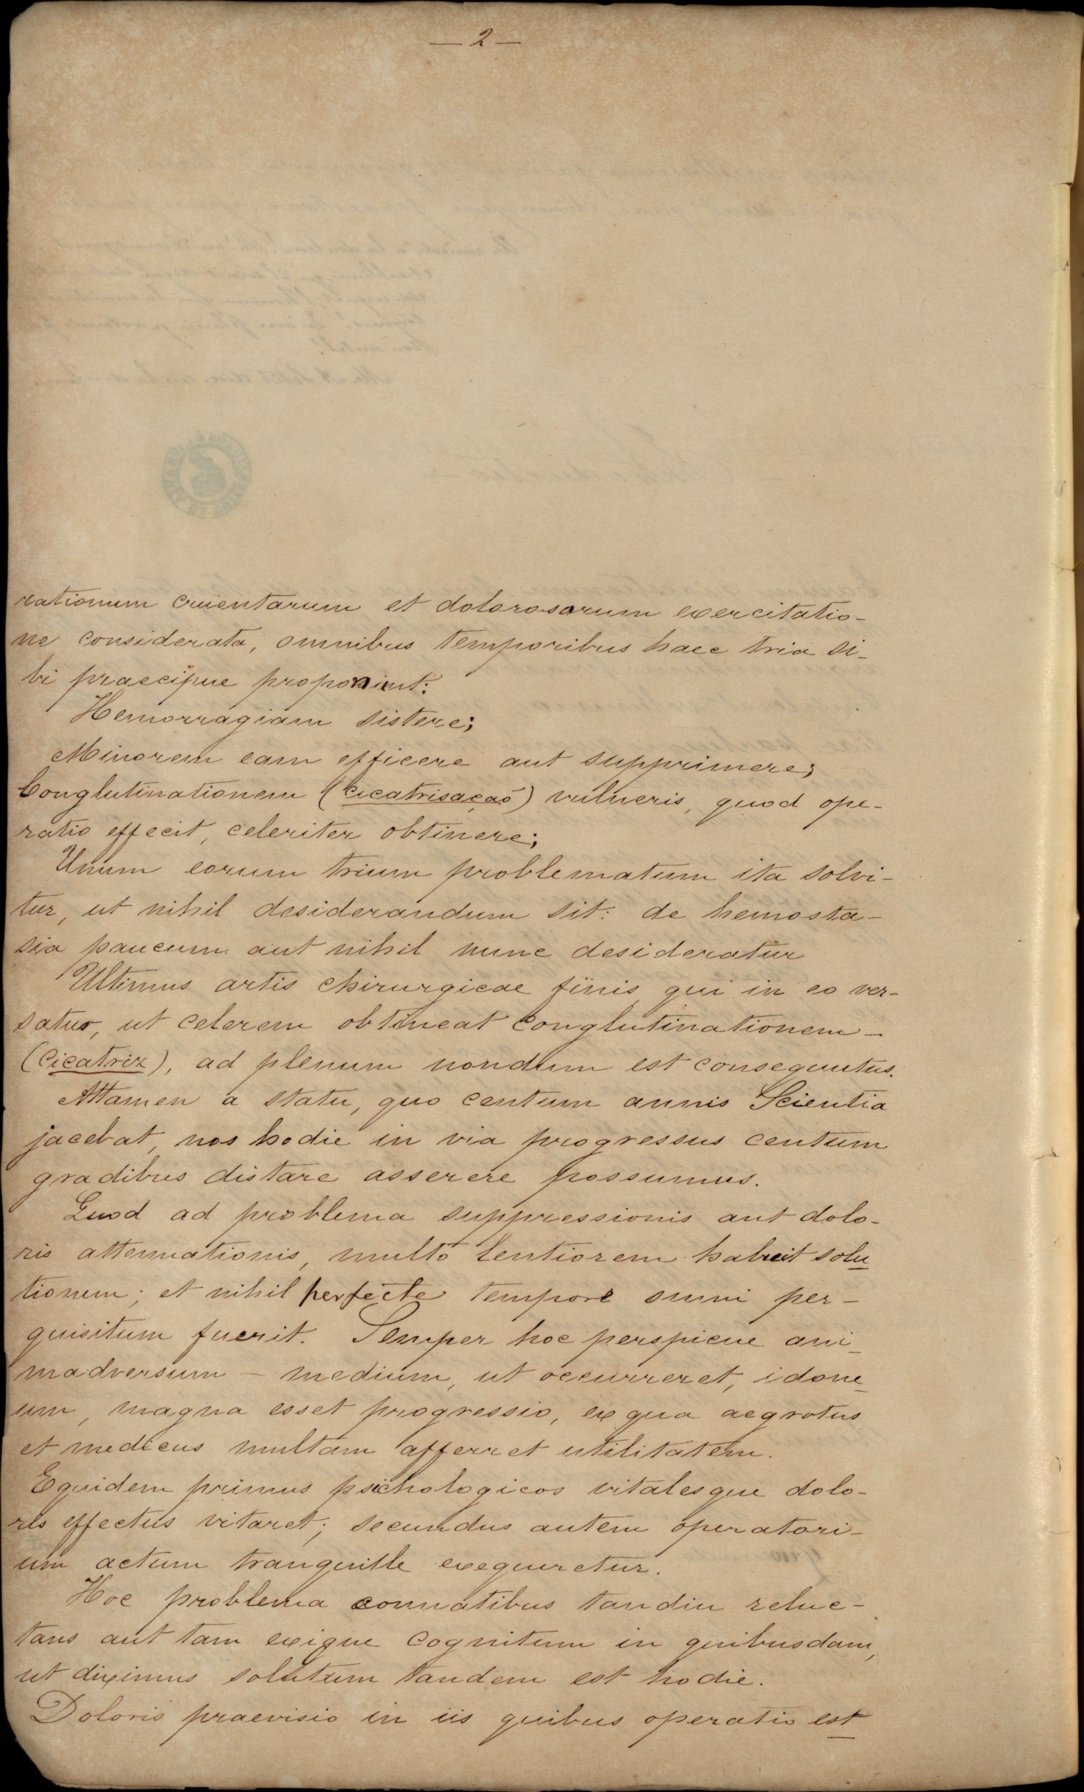 — 2 —
rationum cruentarum et dolorosarum exercitatio-
ne considerata, omnibus temporibus haec tria si-
bi praecipue proponient:
Hemorragiam sistere;
Minorem eam efficere aut supprimere;
Conglutinationem (cicatrisação) vulneris, quod ope-
ratio effecit, celeriter obtinere;
Unum eorum trium problematum ita solvi-
tur, ut nihil desiderandum sit: de hemosta-
sia paucum aut nihil nunc desideratur
Ultimus artis chirurgicae finis, qui in eo ver-
satur, ut celerem obtineat conglutinationem -
(cicatriz), ad plenum nondum est consequutus.
Attamen a statu, quo centum annis Scientia
jacebat, nos hodie in via progressus centum
gradibus distare asserere possumus.
Quod ad problema suppressionis aut dolo-
ris attenuationis, multo lentiorem habuit solu
tionem; et nihil perfecte tempore omni per-
quisitum fuerit. Semper hoc perspicue ani_
madversum - medium, ut occurreret, idone_
um, magna esset progressio, ex qua aegrotus
et medicus multam afferret utilitatem.
Equidem primus psichologicos vitalesque dolo-
ris effectus vitaret; secundus autem operatori-
um actum tranquille exequeretur.
Hoc problema connatibus tandiu reluc-
tans aut tam exigue cognitum in quibusdam,
ut diximus solutum tandem est hodie.
Doloris praevisio in iis quibus operatio est